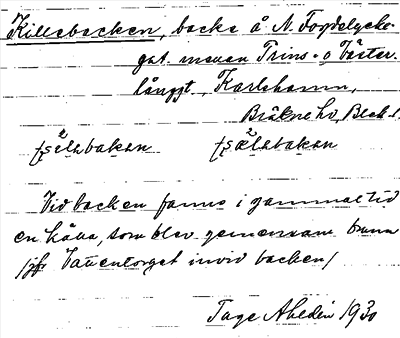 Källebacken, backe å N. Fogdelycke-
gat. mellan Prins- o Väster-
långgt., Karlshamn,
Bräkne hd, Blek. l.
Vid backen fanns i gammal tid
en källa, som blev gemensam brunn
/jfr Vattentorget invid backen/
Tage Ahldén 1930